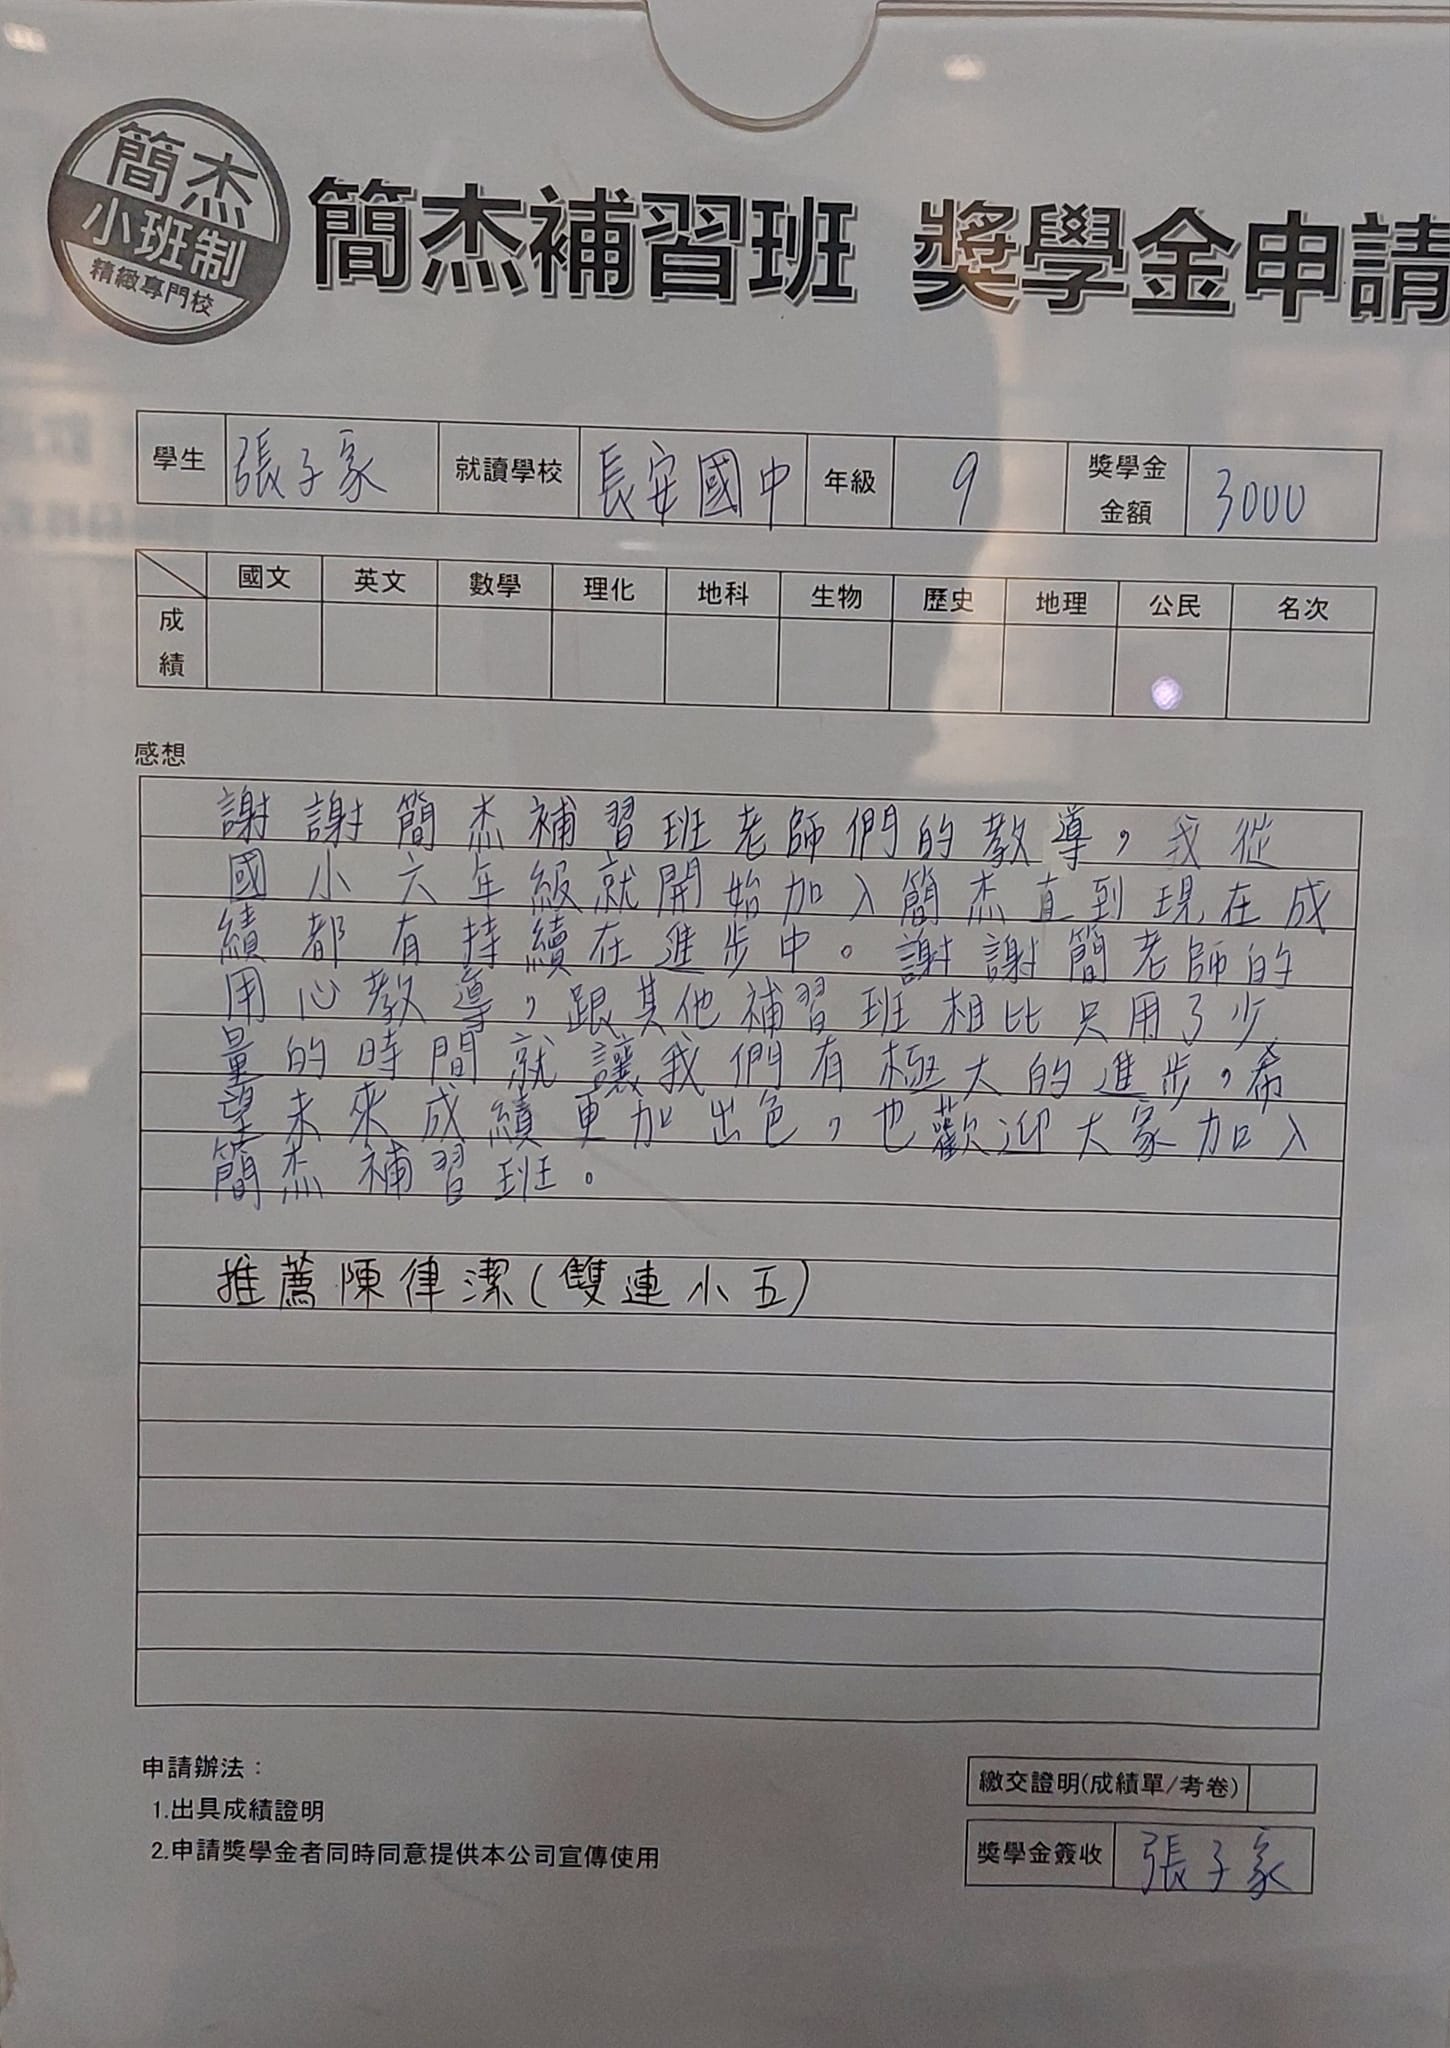 簡杰
小班制
精緻專門校
簡杰補習班 獎學金申請
學生 張子家 就讀學校 長安國中 年級 9 獎學金金額 3000
國文 英文 數學 理化 地科 生物 歷史 地理 公民 名次
成績
感想
謝謝簡杰補習班老師們的教導，我從
國小六年級就開始加入簡杰直到現在成
績都有持續在進步中。謝謝簡老師的
用心教導，跟其他補習班相比只用了少
量的時間就讓我們有極大的進步，希
望未來成績更加出色，也歡迎大家加入
簡杰補習班。
推薦陳律潔(雙連小五)
申請辦法：
1.出具成績證明
2.申請獎學金者同時同意提供本公司宣傳使用
繳交證明(成績單/考卷)
獎學金簽收 張子家